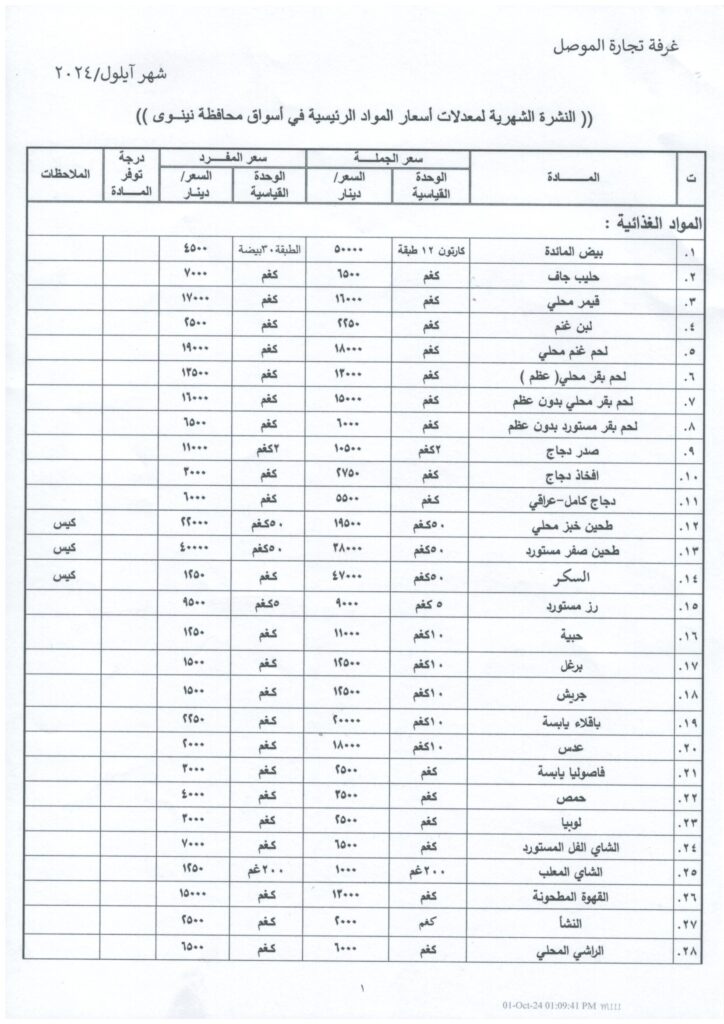 غرفة تجارة الموصل
شهر آيلول/٢٠٢٤
(( النشرة الشهرية لمعدلات أسعار المواد الرئيسية في أسواق محافظة نينوى ))
ت المـــادة سعر الجملـــة سعر المفـرد درجة توفر المـــادة الملاحظات
الوحدة القياسية السعر/ دينار الوحدة القياسية السعر/ دينار
المواد الغذائية :
١. بيض المائدة كارتون ١٢ طبقة ٥٠٠٠٠ الطبقة٣٠بيضة ٤٥٠٠
٢. حليب جاف كغم ٦٥٠٠ كغم ٧٠٠٠
٣. قيمر محلي كغم ١٦٠٠٠ كغم ١٧٠٠٠
٤. لبن غنم كغم ٢٢٥٠ كغم ٢٥٠٠
٥. لحم غنم محلي كغم ١٨٠٠٠ كغم ١٩٠٠٠
٦. لحم بقر محلي( عظم ) كغم ١٣٠٠٠ كغم ١٣٥٠٠
٧. لحم بقر محلي بدون عظم كغم ١٥٠٠٠ كغم ١٦٠٠٠
٨. لحم بقر مستورد بدون عظم كغم ٦٠٠٠ كغم ٦٥٠٠
٩. صدر دجاج ٢كغم ١٠٥٠٠ ٢كغم ١١٠٠٠
١٠. افخاذ دجاج كغم ٢٧٥٠ كغم ٣٠٠٠
١١. دجاج كامل-عراقي كغم ٥٥٠٠ كغم ٦٠٠٠
١٢. طحين خبز محلي ٥٠كغم ١٩٥٠٠ ٥٠كغم ٢٢٠٠٠ كيس
١٣. طحين صفر مستورد ٥٠كغم ٣٨٠٠٠ ٥٠كغم ٤٠٠٠٠ كيس
١٤. السكر ٥٠كغم ٤٧٠٠٠ كغم ١٢٥٠ كيس
١٥. رز مستورد ٥ كغم ٩٠٠٠ ٥كغم ٩٥٠٠
١٦. حبية ١٠كغم ١١٠٠٠ كغم ١٢٥٠
١٧. برغل ١٠كغم ١٢٥٠٠ كغم ١٥٠٠
١٨. جريش ١٠كغم ١٢٥٠٠ كغم ١٥٠٠
١٩. باقلاء يابسة ١٠كغم ٢٠٠٠٠ كغم ٢٢٥٠
٢٠. عدس ١٠كغم ١٨٠٠٠ كغم ٢٠٠٠
٢١. فاصوليا يابسة كغم ٢٥٠٠ كغم ٣٠٠٠
٢٢. حمص كغم ٣٥٠٠ كغم ٤٠٠٠
٢٣. لوبيا كغم ٢٥٠٠ كغم ٣٠٠٠
٢٤. الشاي الفل المستورد كغم ٦٥٠٠ كغم ٧٠٠٠
٢٥. الشاي المعلب ٢٠٠غم ١٠٠٠ ٢٠٠غم ١٢٥٠
٢٦. القهوة المطحونة كغم ١٣٠٠٠ كغم ١٥٠٠٠
٢٧. النشأ كغم ٢٠٠٠ كغم ٢٥٠٠
٢٨. الراشي المحلي كغم ٦٠٠٠ كغم ٦٥٠٠
١
01-Oct-24 01:09:41 PM